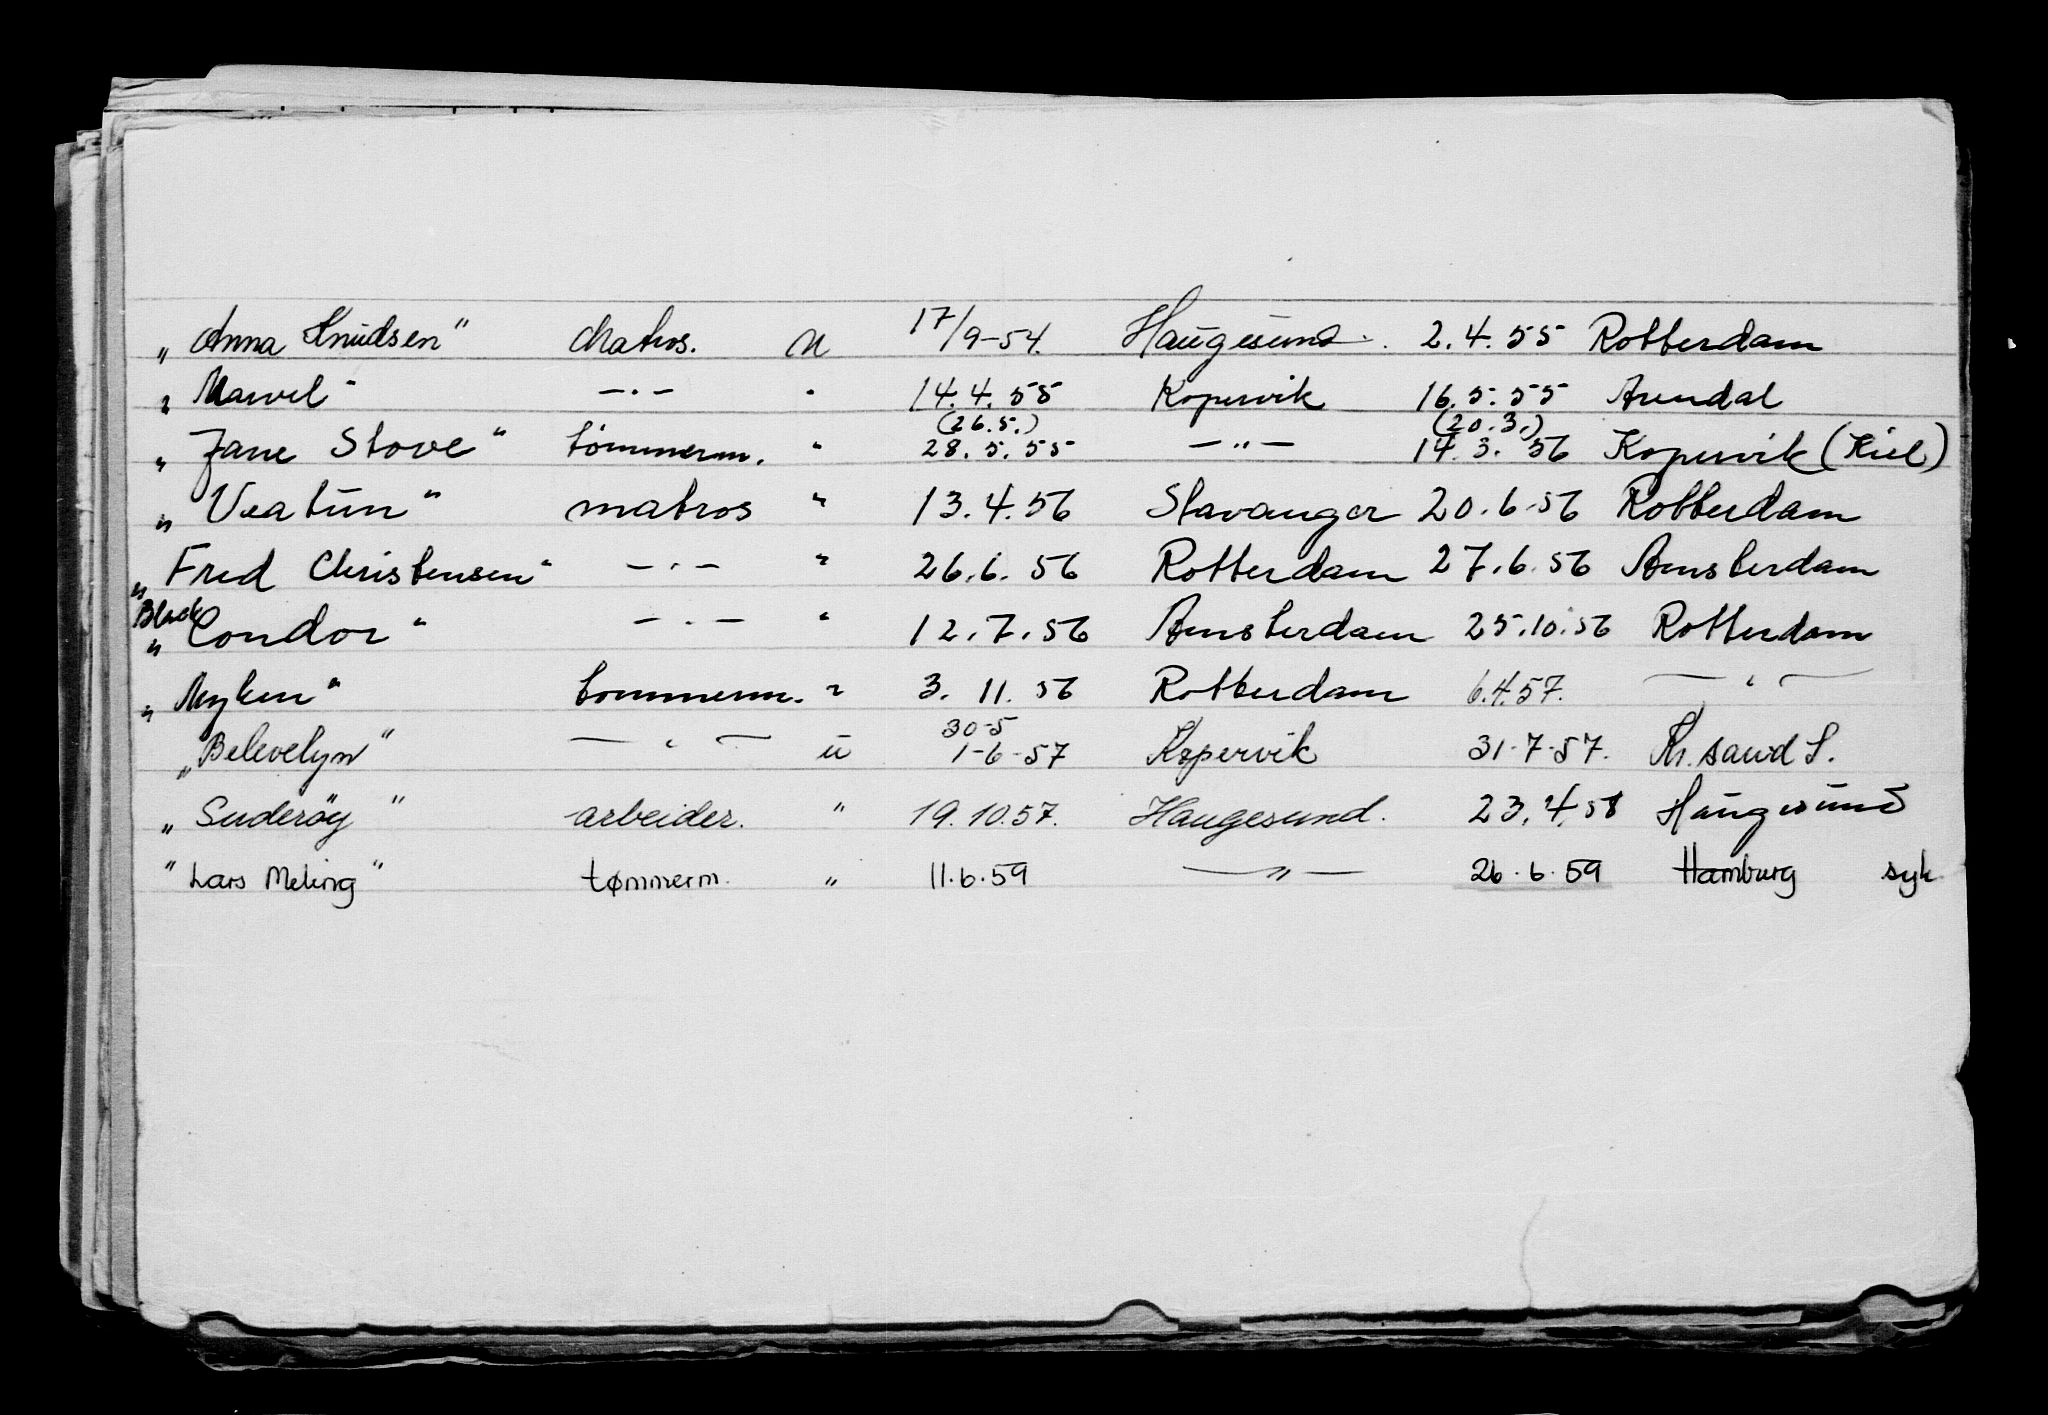 „ Anna Knudsen" Matros. U 17/9-54. Haugesund. 2.4.55 Rotterdam
„ Marvel" —·— " 14.4.55 Kopervik 16.5.55 Arendal
(26.5.) (20.3.)
„ Jane Stove" tømmerm. " 28.5.55 —"— 14.3.56 Kopervik (Kiel)
„ Veatun" matros " 13.4.56 Stavanger 20.6.56 Rotterdam
„ Fred Christensen" —·— " 26.6.56 Rotterdam 27.6.56 Amsterdam
Black
„ Condor" —·— " 12.7.56 Amsterdam 25.10.56 Rotterdam
„ Myken" tømmerm. " 3.11.56 Rotterdam 6.4.57. —"—
30-5
„ Belevelyn" —"— u 1-6-57 Kopervik 31-7-57. Kr.sand S.
„ Suderøy" arbeider. " 19.10.57. Haugesund. 23.4.58 Haugesund
" Lars Meling" tømmerm. " 11.6.59 —"— 26.6.59 Hamburg syk